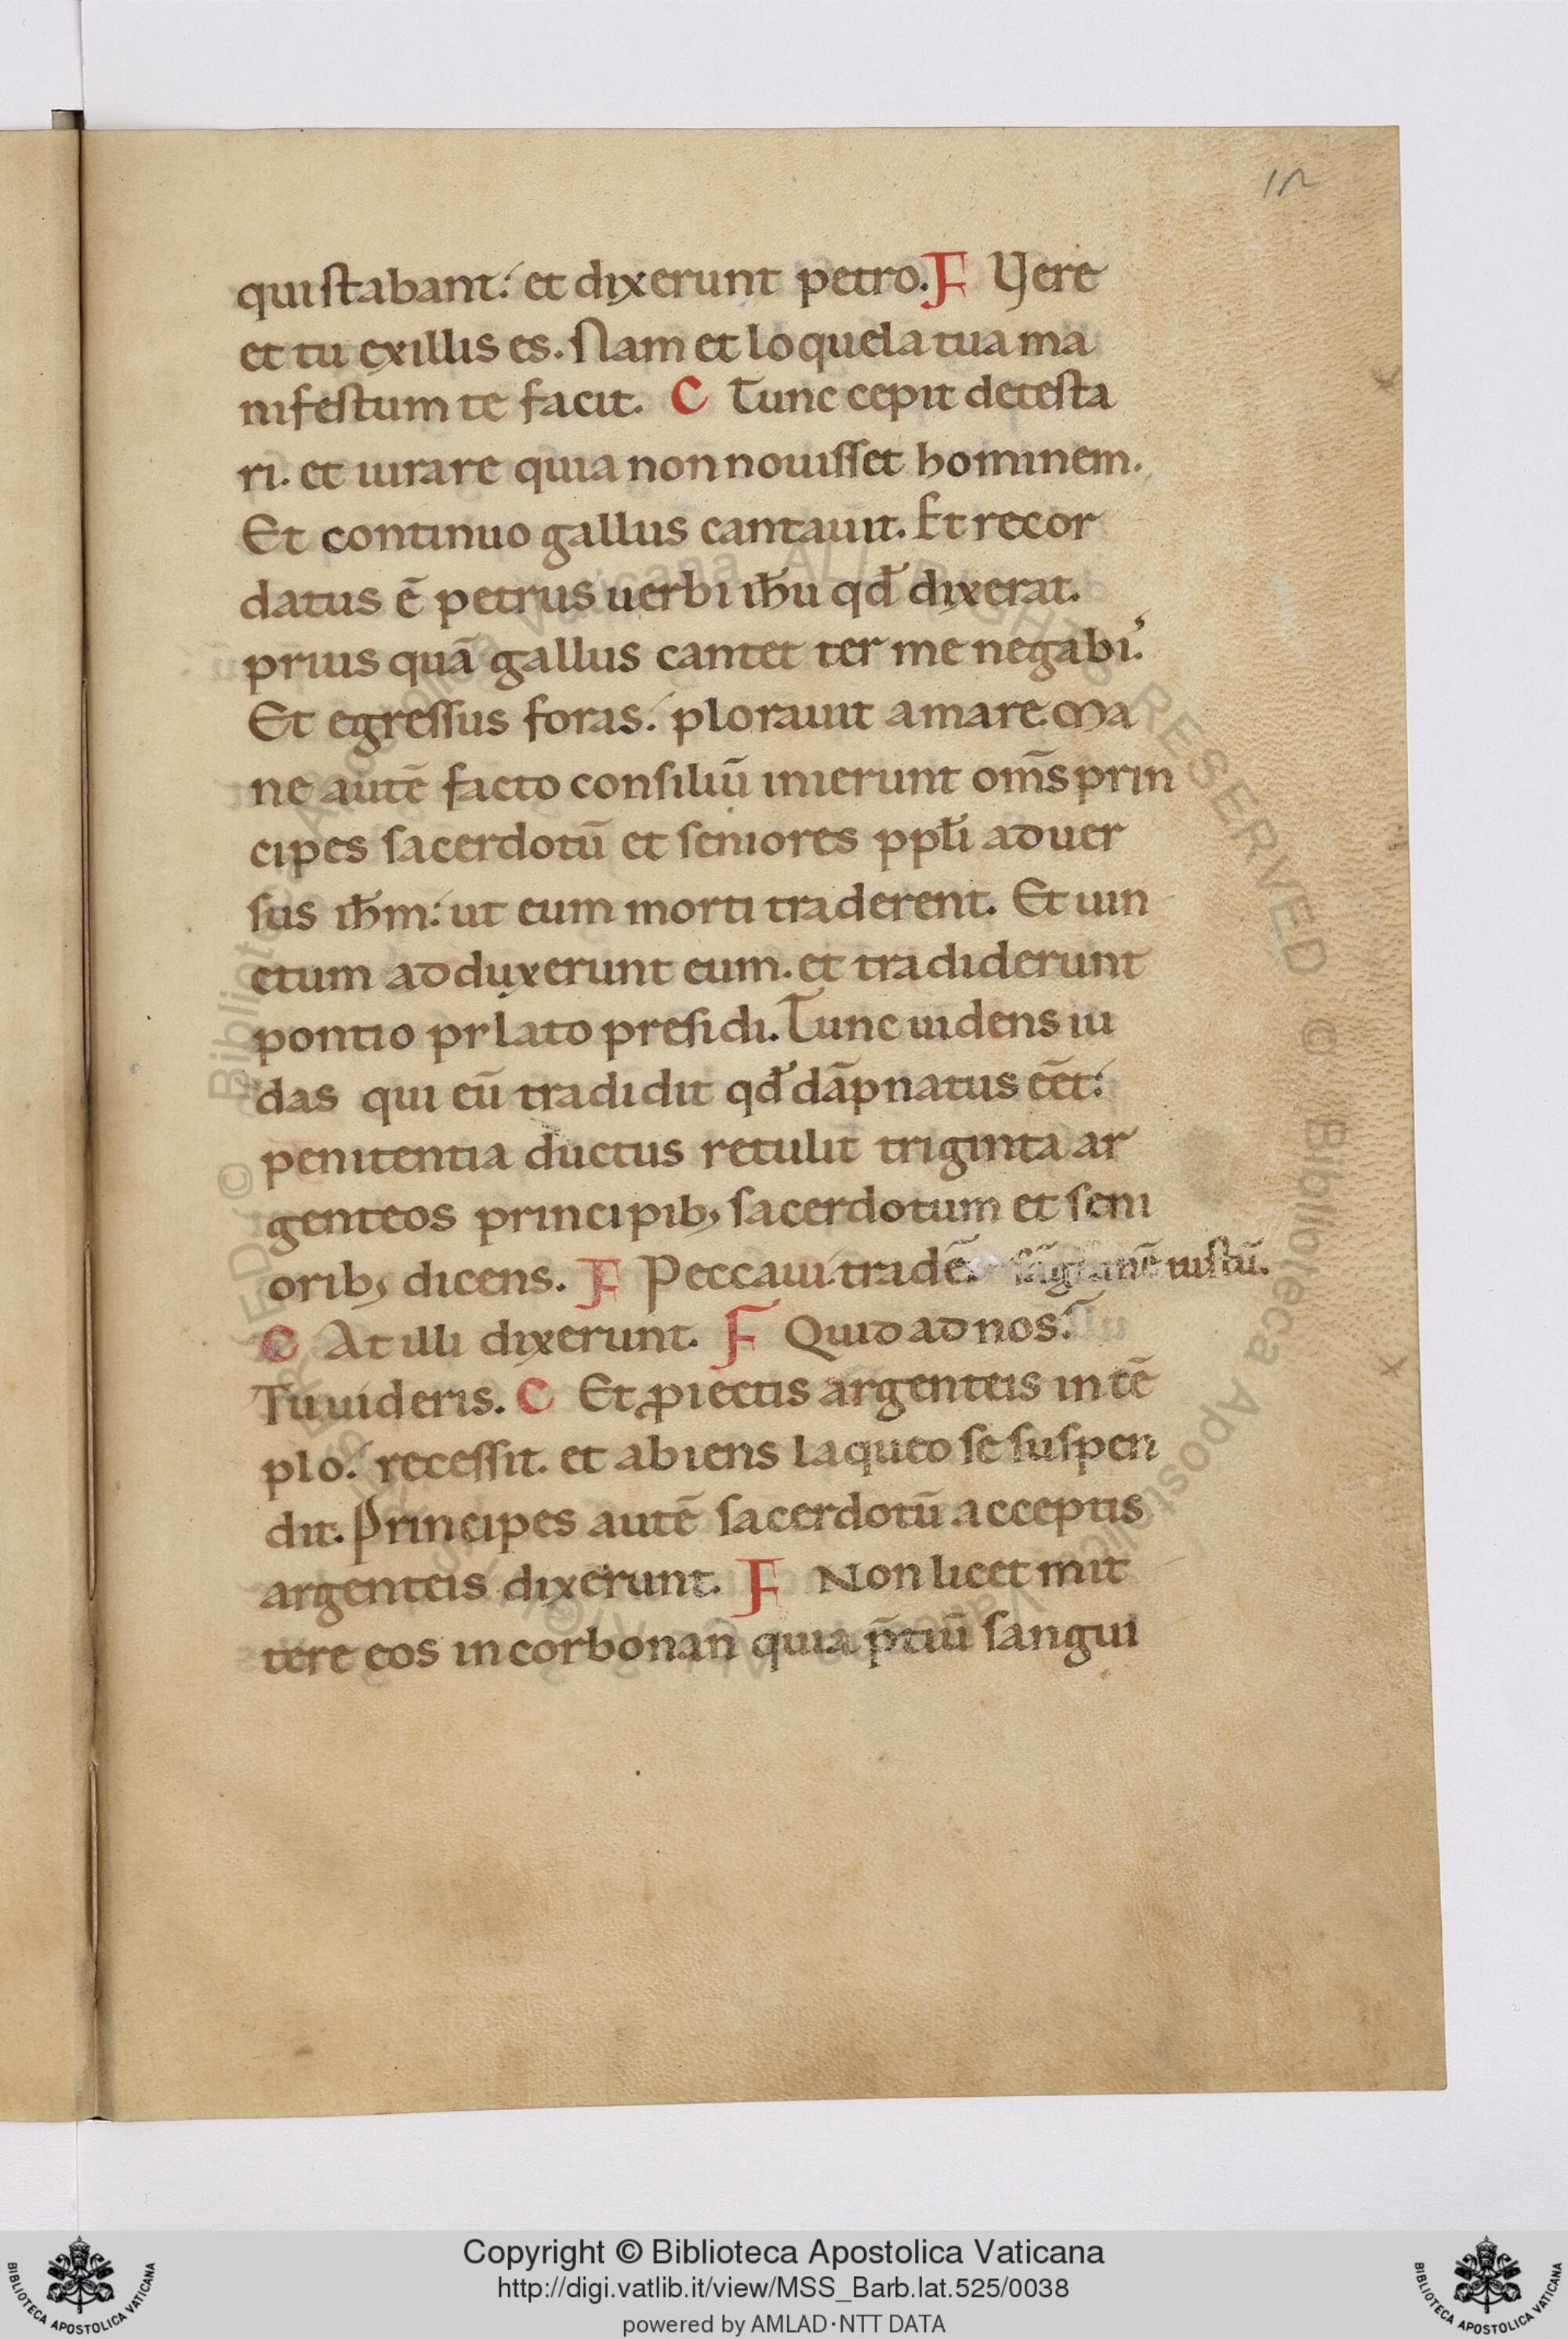 12
qui stabant: et dixerunt petro. F Vere
et tu exillis es. Nam et loquela tua ma
nifestum te facit. C Tunc cepit detesta
ri. et iurare quia non nouisset hominem.
Et continuo gallus cantauit. Et recor
datus ē petrus uerbi ihu̅ qd̅ dixerat.
prius quā gallus cantet ter me negabi.ʼ
Et egressus foras: plorauit amare. Ma
ne autē facto consiliū inierunt om̄s prin
cipes sacerdotū et seniores ppl̅i aduer
sus ih̅m: ut eum morti traderent. Et uin
ctum adduxerunt eum. et tradiderunt
pontio prlato presidi. Tunc uidens iu
das qui eū tradidit qd̅ dāpnatus eēt:
penitentia ductus retulit triginta ar
genteos principib; sacerdotum et seni
orib; dicens. F Peccaui. tradēs iustū.
C At illi dixerunt. F Quid ad nos:
Tu uideris. C Et ꝓiectis argenteis in tē
plo: recessit. et abiens laqueo se suspen
dit. Principes autē sacerdotū acceptis
argenteis dixerunt. F Non licet mit
tere eos in corbonan̄ quia p̄tiū sangui
Copyright © Biblioteca Apostolica Vaticana
http://digi.vatlib.it/view/MSS_Barb.lat.525/0038
powered by AMLAD·NTT DATA
BIBLIOTECA APOSTOLICA VATICANA
BIBLIOTECA APOSTOLICA VATICANA